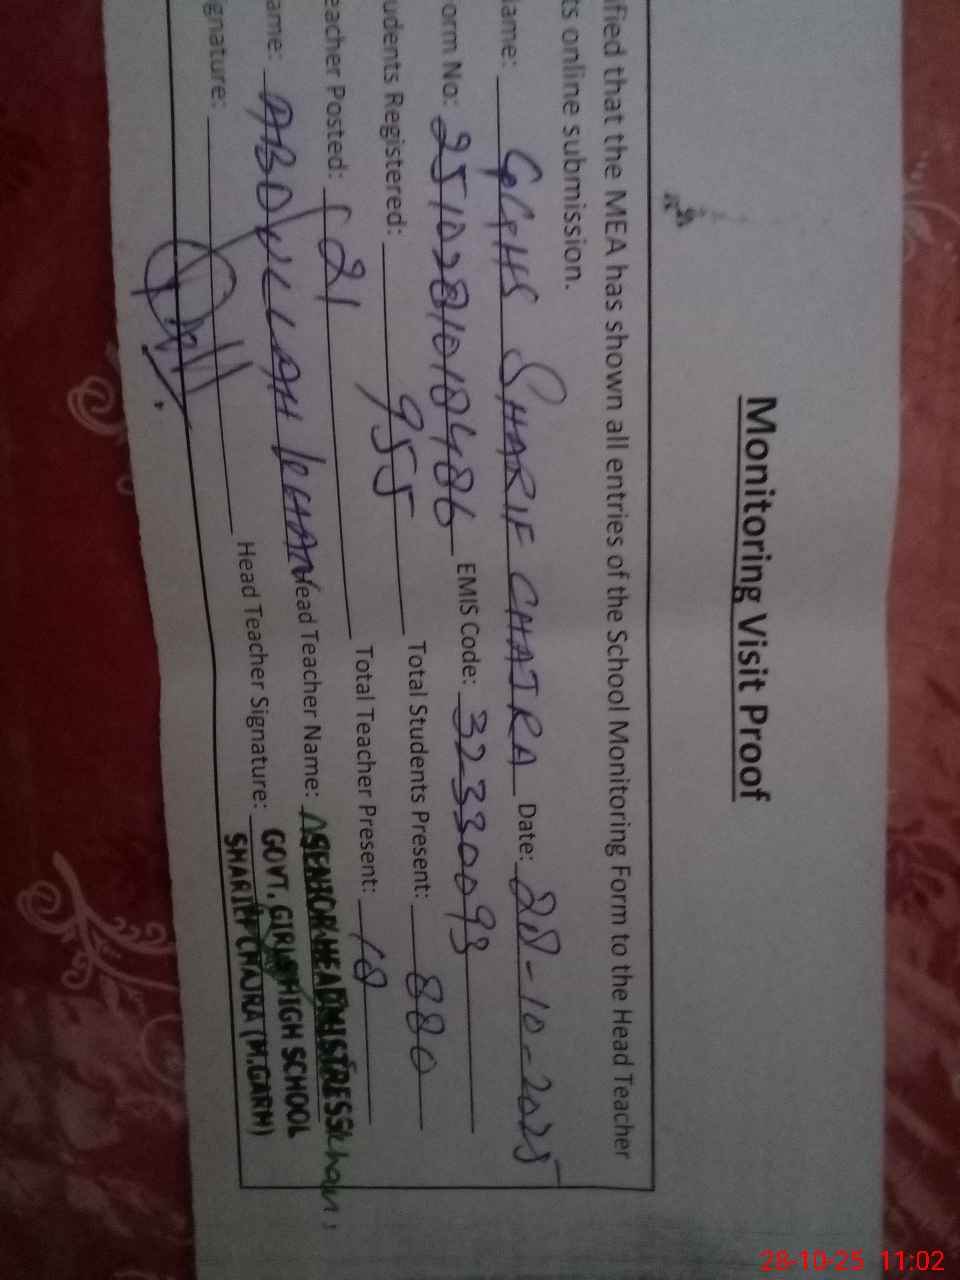 Monitoring Visit Proof
ified that the MEA has shown all entries of the School Monitoring Form to the Head Teacher
ts online submission.
Name: GGHS SHARIF CHATRA Date: 28-10-2025
orm No: 2510281018486 EMIS Code: 32330093
udents Registered: 955 Total Students Present: 880
eacher Posted: 21 Total Teacher Present: 18
ame: ABDULLAH KHAN Head Teacher Name:
SENIOR HEADMISTRESS
ignature: Head Teacher Signature:
GOVT. GIRLS HIGH SCHOOL
SHARIF CHAJRA (M.GARH)
28-10-25 11:02